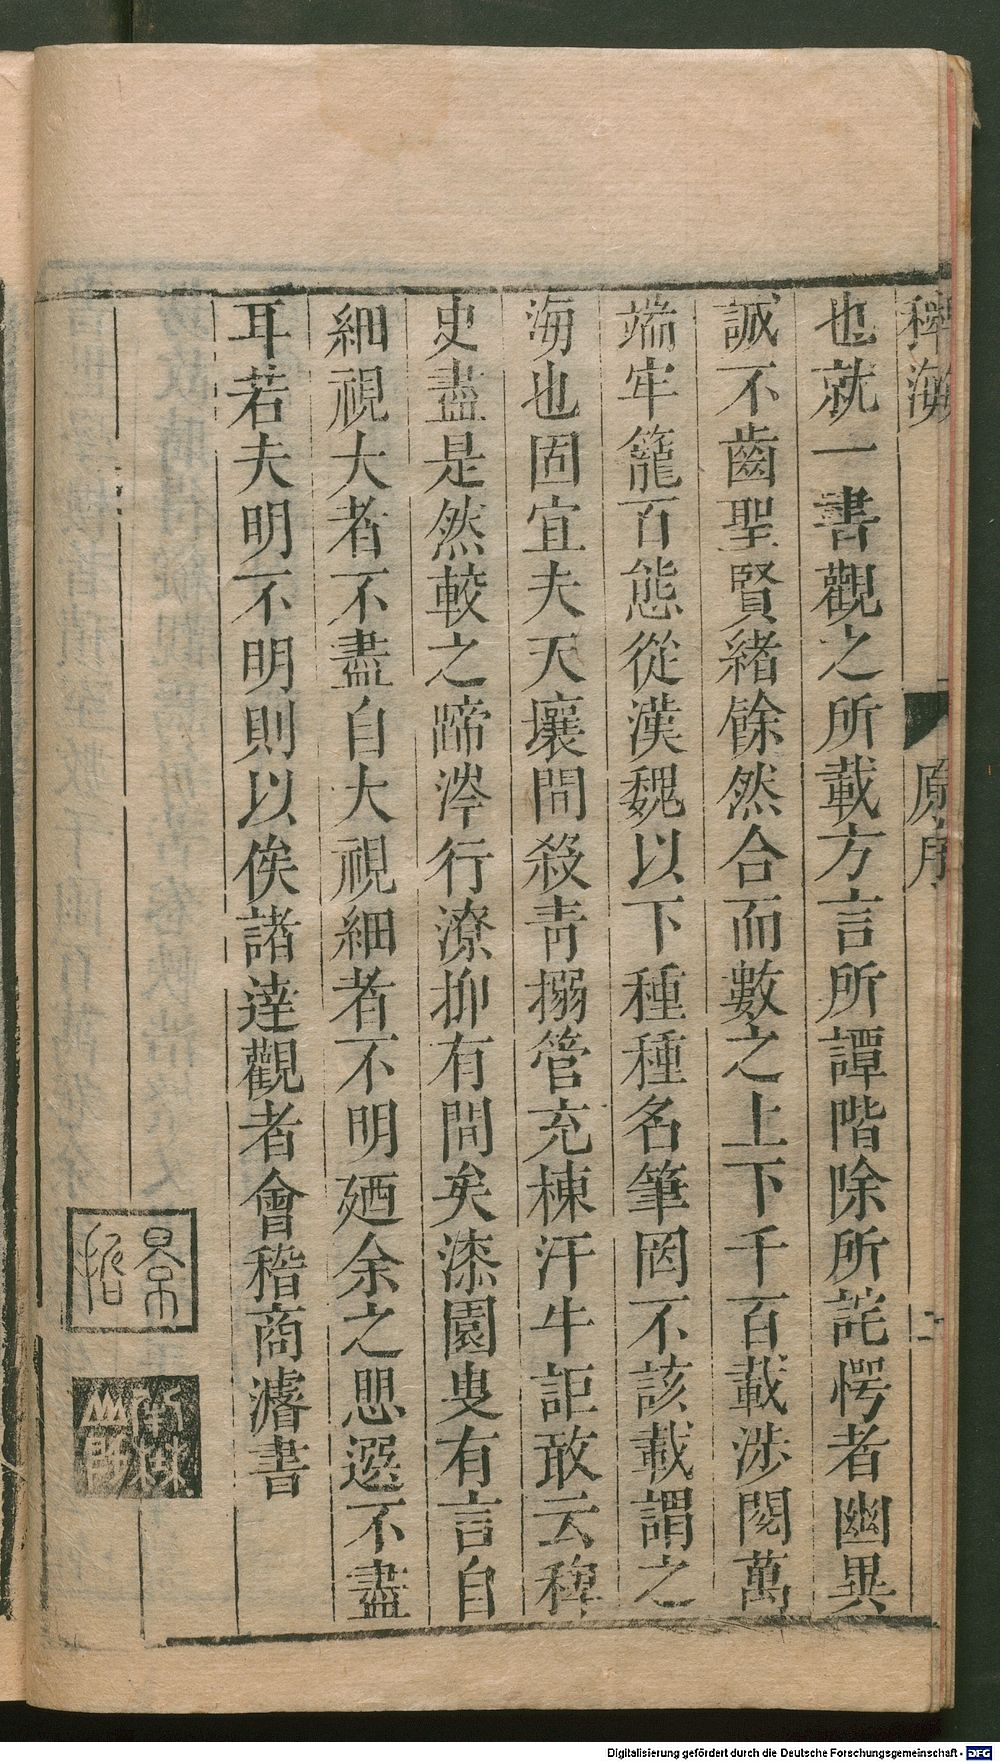 稗海
原序
二
也就一書觀之所載方言所譚階除所詫愕者幽異
誠不齒聖賢緒餘然合而數之上下千百載涉閱萬
端牢籠百態從漢魏以下種種名筆罔不該載謂之
海也固宜夫天壤間殺青搦管充棟汗牛詎敢云稗
史盡是然較之蹄涔行潦抑有間矣漆園叟有言自
細視大者不盡自大視細者不明廼余之思選不盡
耳若夫明不明則以俟諸達觀者會稽商濬書
景哲
Digitalisierung gefördert durch die Deutsche Forschungsgemeinschaft - DFG